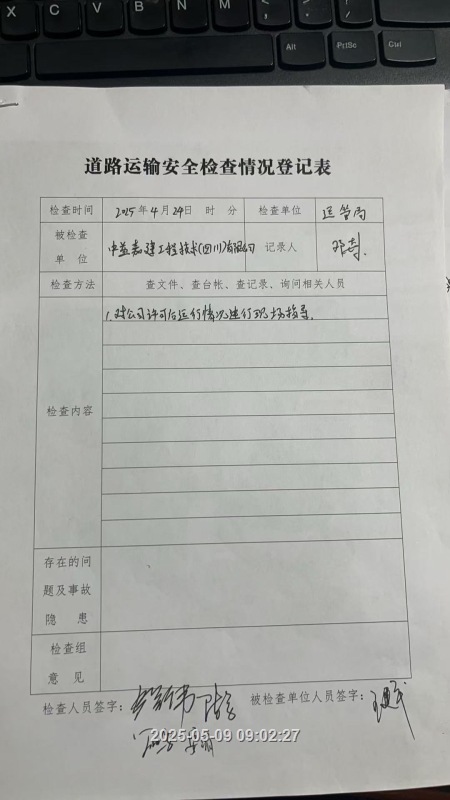 X C V B N M
Alt PrtSc Ctrl
道路运输安全检查情况登记表
检查时间 2025年4月24日 时 分 检查单位 运管局
被检查单位 中益嘉建工程技术(四川)有限公司 记录人
检查方法 查文件、查台帐、查记录、询问相关人员
检查内容 1.对公司许可后运行情况进行现场指导.
存在的问
题及事故
隐 患
检查组
意 见
检查人员签字： 被检查单位人员签字：
2025-05-09 09:02:27